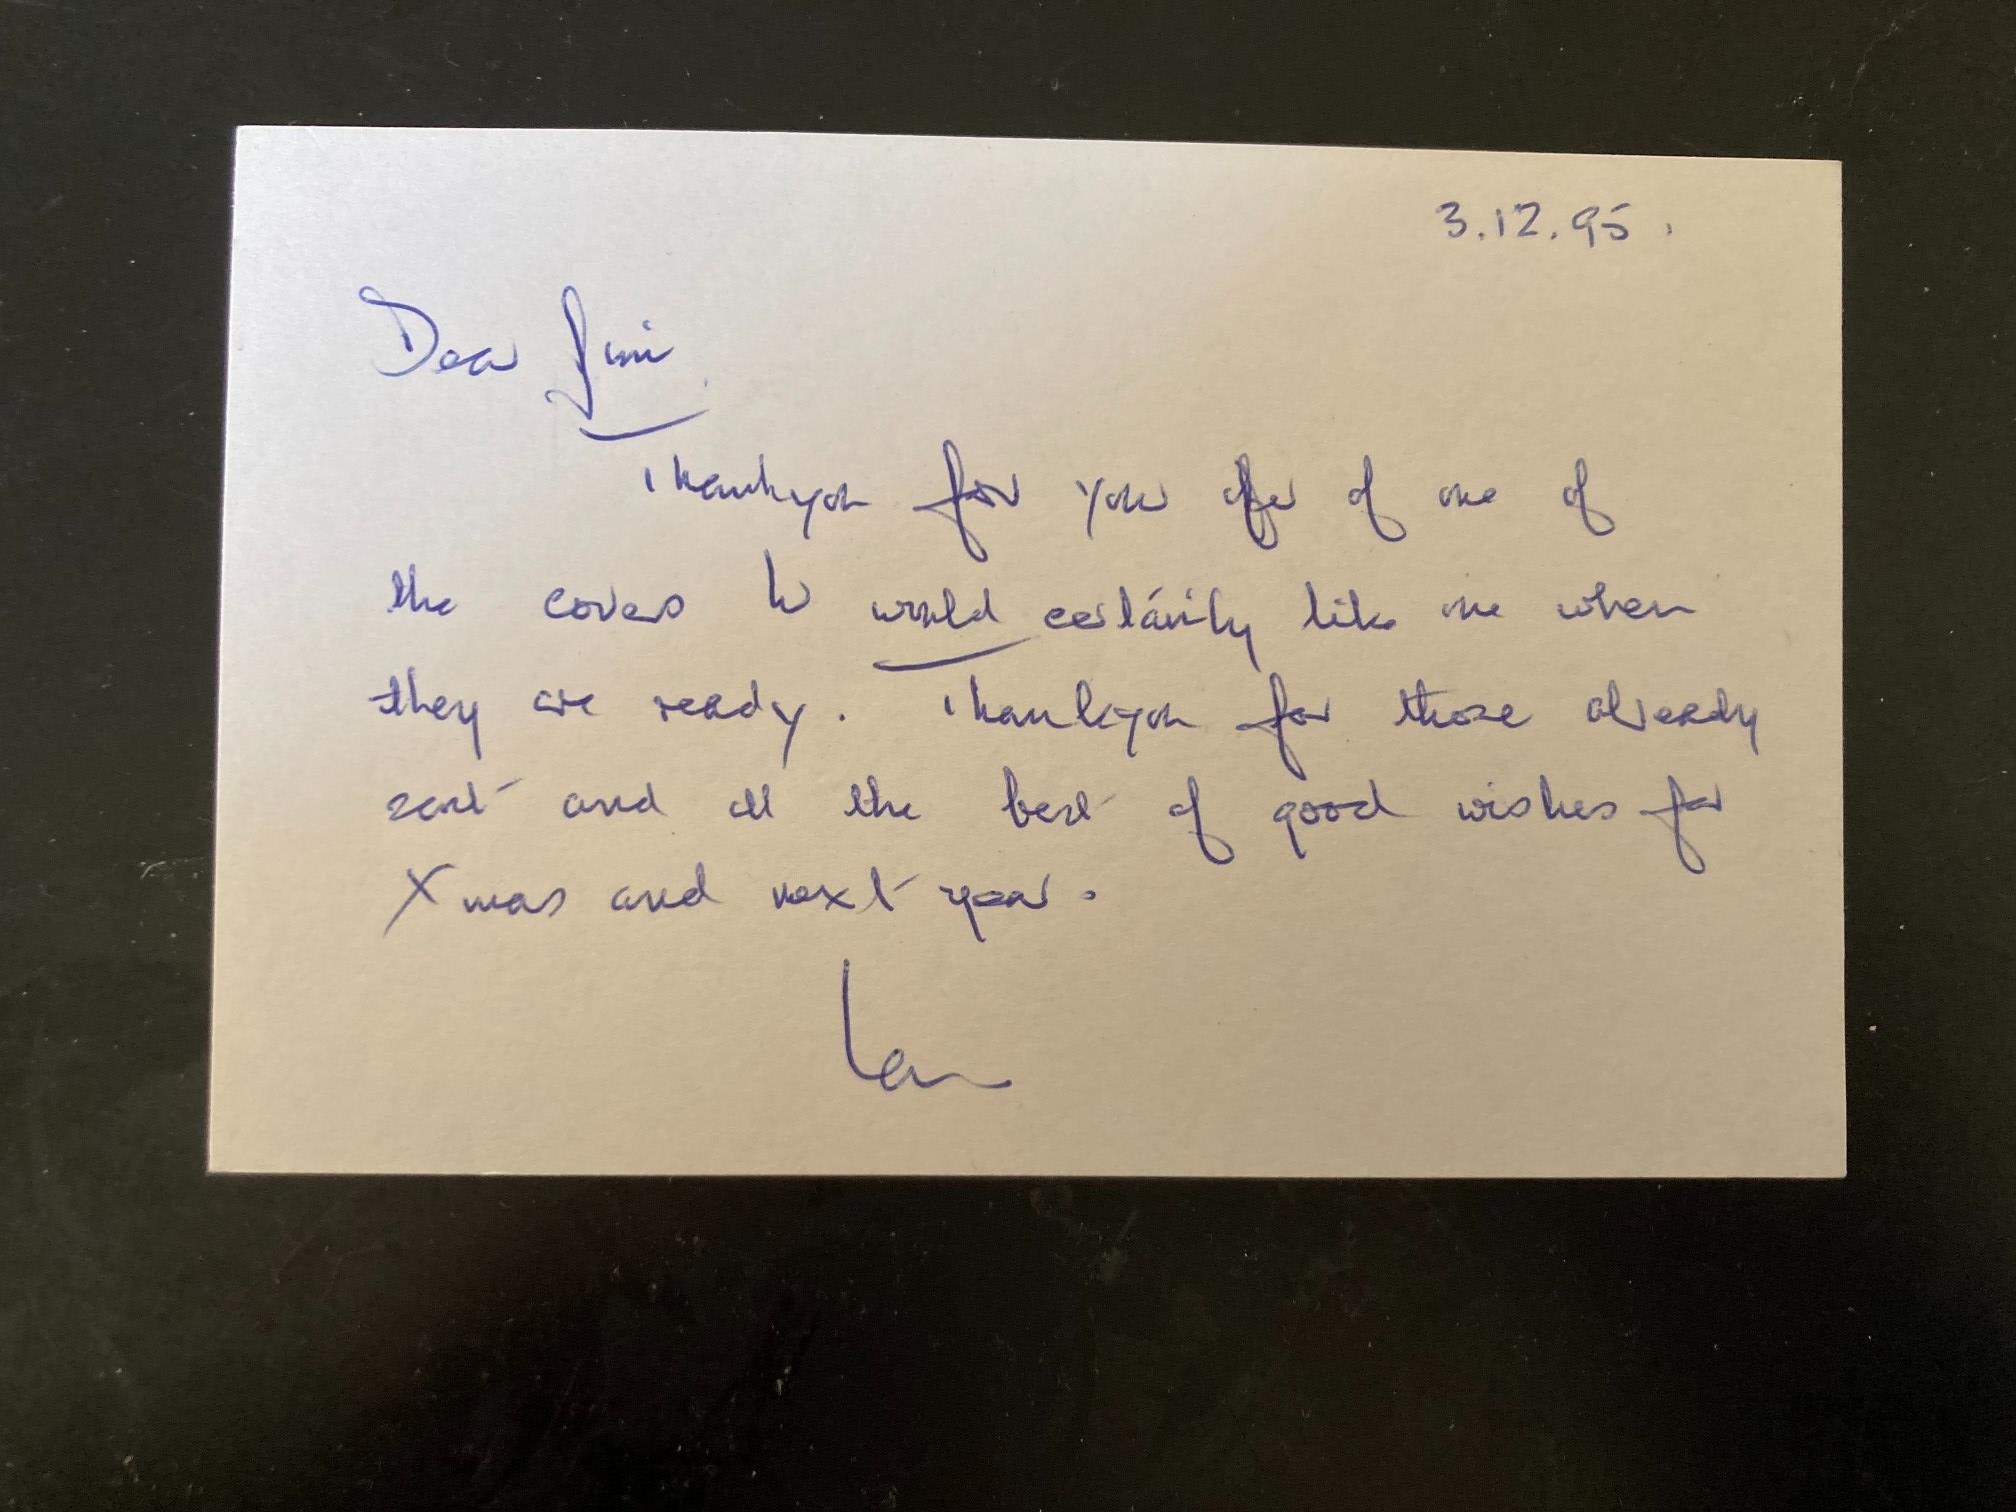 3.12.95.
Dear Jim
Thankyou for your offer of one of
the covers would certainly like one when
they are ready. Thankyou for those already
sent and all the best of good wishes for
Xmas and next year.
Ian